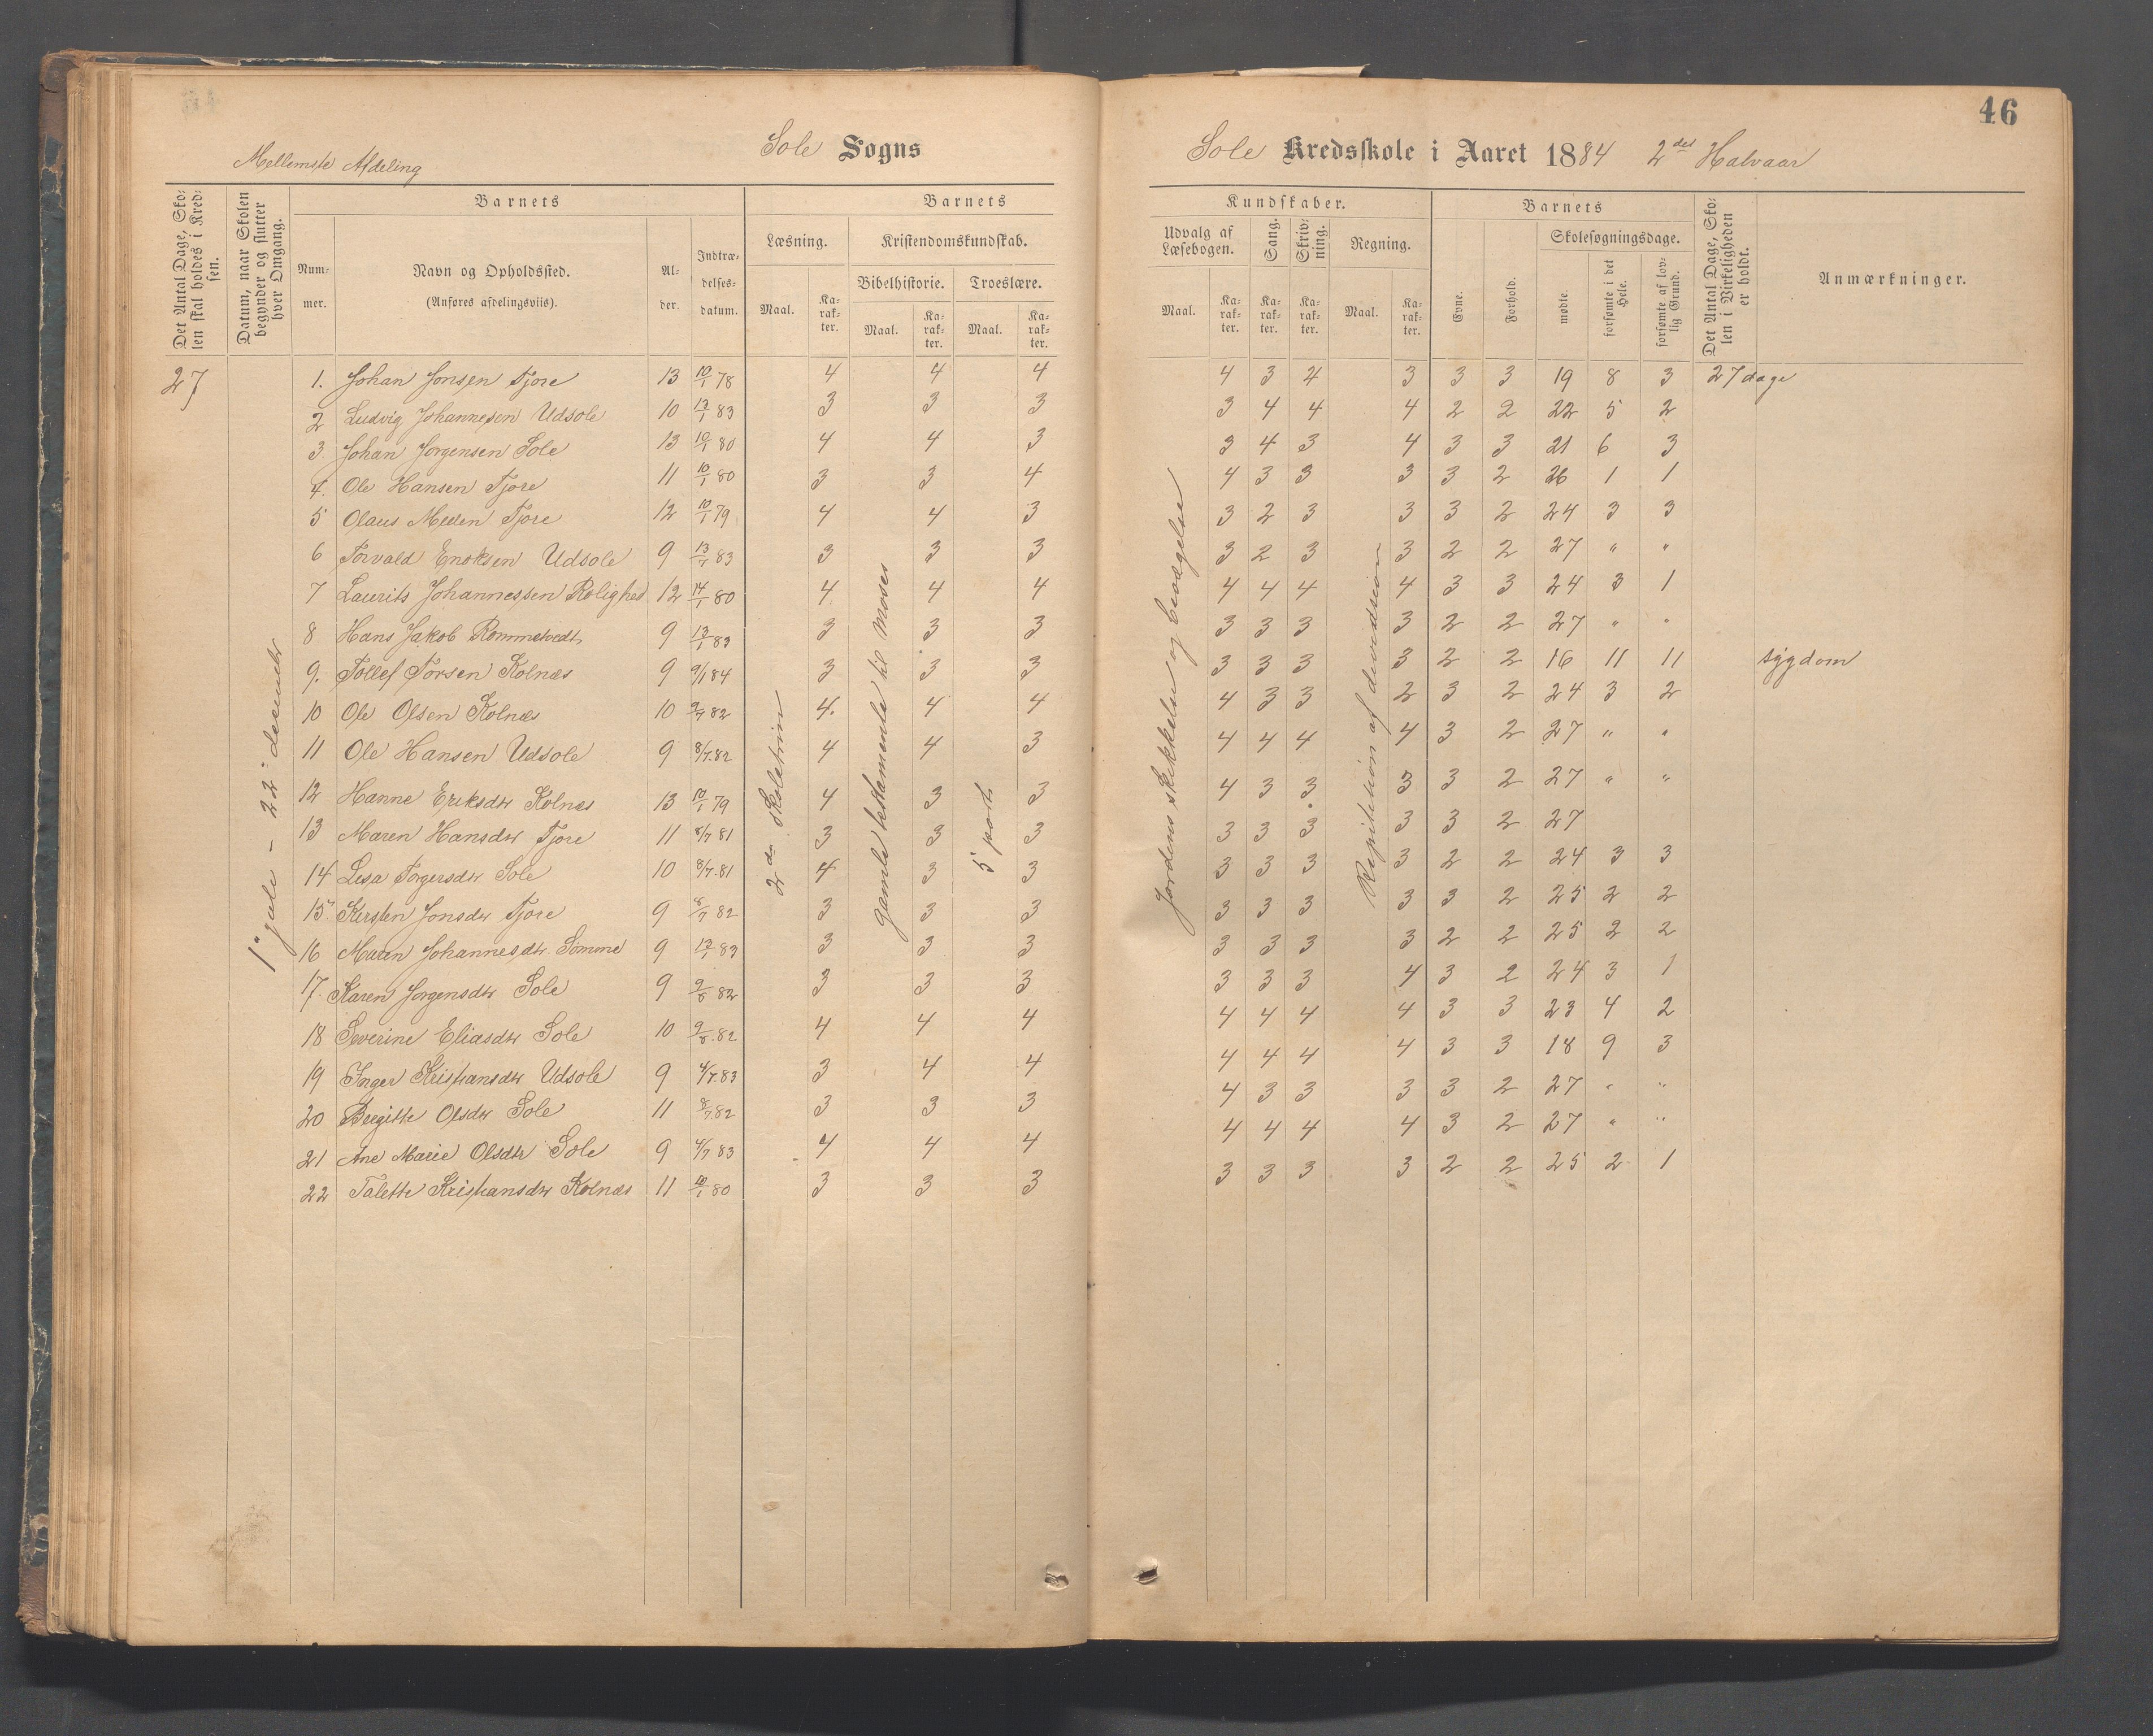 46
Mellemste Afdeling
Sole Sogns
Sole Kredsskole i Aaret 1884 2det Halvaar
Det Antal Dage, Skolen skal holdes i Kredsen.
Datum, naar Skolen begynder og slutter hver Omgang.
Barnets
Nummer.
Navn og Opholdssted.
(Anføres afdelingsviis).
Alder.
Indtrædelsesdatum.
Barnets Kundskaber.
Læsning.
Maal. Karakter.
Kristendomskundskab.
Bibelhistorie. Troeslære.
Maal. Karakter. Maal. Karakter.
Udvalg af Læsebogen.
Maal. Karakter.
Sang. Karakter.
Skrivning. Karakter.
Regning.
Maal. Karakter.
Barnets
Evne. Forhold.
Skolesøgningsdage.
mødte. forsømte i det Hele. forsømte af lovlig Grund.
Det Antal Dage, Skolen i Virkeligheden er holdt.
Anmærkninger.
27
1. Johan Jonsen Tjore 13 10/1 78 4 4 4 4 3 4 3 3 3 19 8 3 27 dage
2 Ludvig Johannesen Udsole 10 13/1 83 3 3 3 3 4 4 4 2 2 22 5 2
3. Johan Jorgensen Sole 13 10/1 80 4 4 3 3 4 3 4 3 3 21 6 3
4. Ole Hansen Tjore 11 10/1 80 3 3 4 4 3 3 3 3 2 26 1 1
5 Olaus Meden Tjore 12 10/1 79 4 4 3 3 2 3 3 3 2 24 3 3
6 Torvald Enoksen Udsole 9 13/7 83 3 3 3 3 2 3 3 2 2 27 " "
7 Laurits Johannessen Rolighed 12 14/1 80 4 4 4 4 4 4 4 3 3 24 3 1
8 Hans Jakob Rommetvedt 9 13/1 83 3 3 3 3 3 3 3 2 2 27 " "
9. Tollef Torsen Kolnæs 9 9/1 84 3 3 3 3 3 3 3 2 2 16 11 11 sygdom
10 Ole Olsen Kolnæs 10 9/7 82 4. 4 4 4 3 3 2 3 2 24 3 2
11 Ole Hansen Udsole 9 8/7.82 4 4 3 4 4 4 4 3 2 27 " "
12 Hanne Eriksdtr Kolnæs 13 10/1 79 4 3 3 4 3 3 3 3 2 27 " "
13 Maren Hansdtr Tjore 11 8/7 81 3 3 3 3 3 3 3 3 2 27
14 Lesa Torgersdtr Sole 10 8/7.81 4 3 3 3 3 3 3 2 2 24 3 3
15. Kersten Jonsdtr Tjore 9 8/7 82 3 3 3 3 3 3 3 3 2 25 2 2
16 Maren Johannesdtr Sömme 9 13/1 83 3 3 3 3 3 3 3 2 2 25 2 2
17. Karen Jorgensdtr Sole 9 9/8 82 3 3 3 3 3 3 4 3 2 24 3 1
18 Severine Eliasdtr Sole 10 9/8.82 4 4 4 4 4 4 4 3 3 23 4 2
19 Inger Kristiansdtr Udsole 9 4/7.83 3 4 4 4 4 4 4 3 3 18 9 3
20 Bergitte Olsdtr Sole 11 8/7 82 3 3 3 4 3 3 3 3 2 27 " "
21 Ane Marie Olsdtr Sole 9 4/7 83 4 4 4 4 4 4 4 3 2 27 " "
22 Talette Kristiansdtr Kolnæs 11 10/1 80 3 3 3 3 3 3 3 2 2 25 2 1
22 december
2de Skoletrin
gamle testamente til Moses
5 part
Jordens skikkelse og bevægelse
Repitition af devidsion